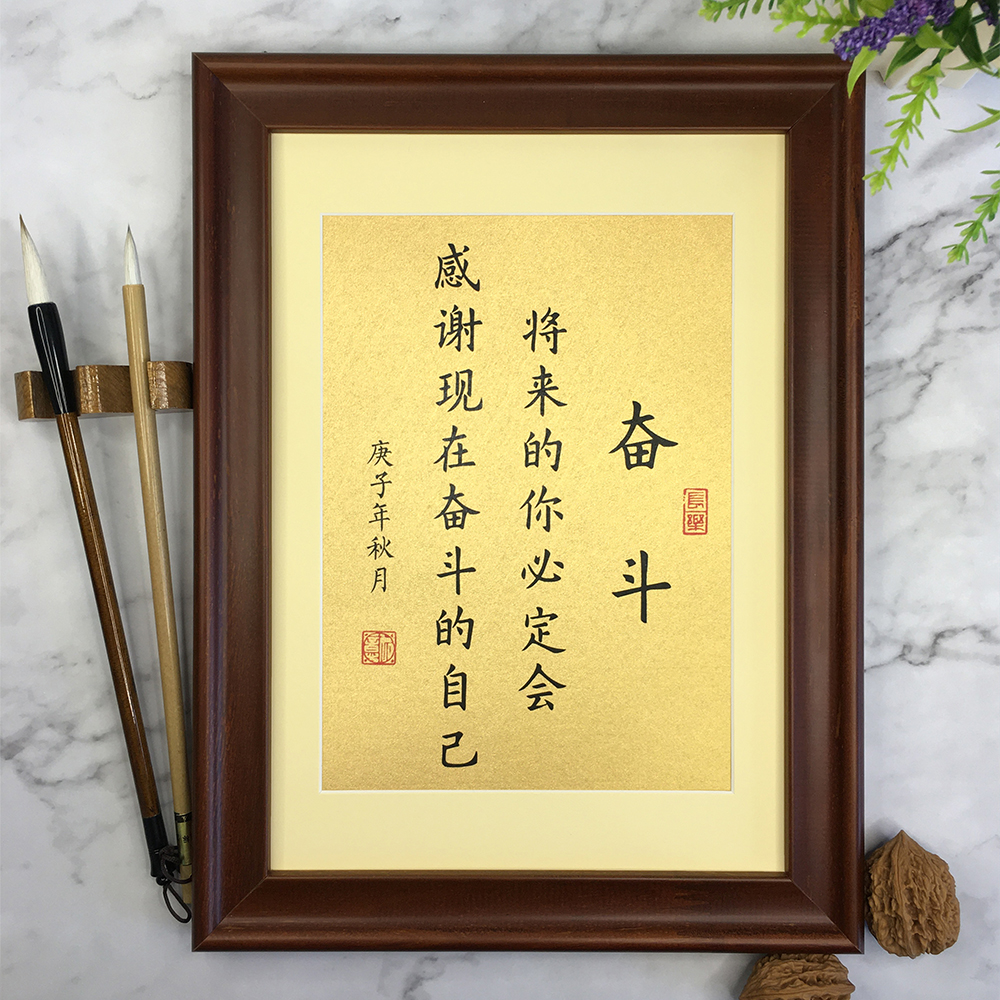 奋斗
長樂
将来的你必定会
感谢现在奋斗的自己
庚子年秋月